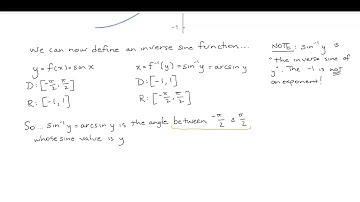 -1
we can now define an inverse sine function...
y = f(x) = sin x
D: [-π/2, π/2]
R: [-1, 1]
x = f⁻¹(y) = sin⁻¹y = arcsin y
D: [-1, 1]
R: [-π/2, π/2]
NOTE: sin⁻¹y is
"the inverse sine of
y". The -1 is not
an exponent!
So... sin⁻¹y = arcsin y is the angle between -π/2 & π/2
whose sine value is y